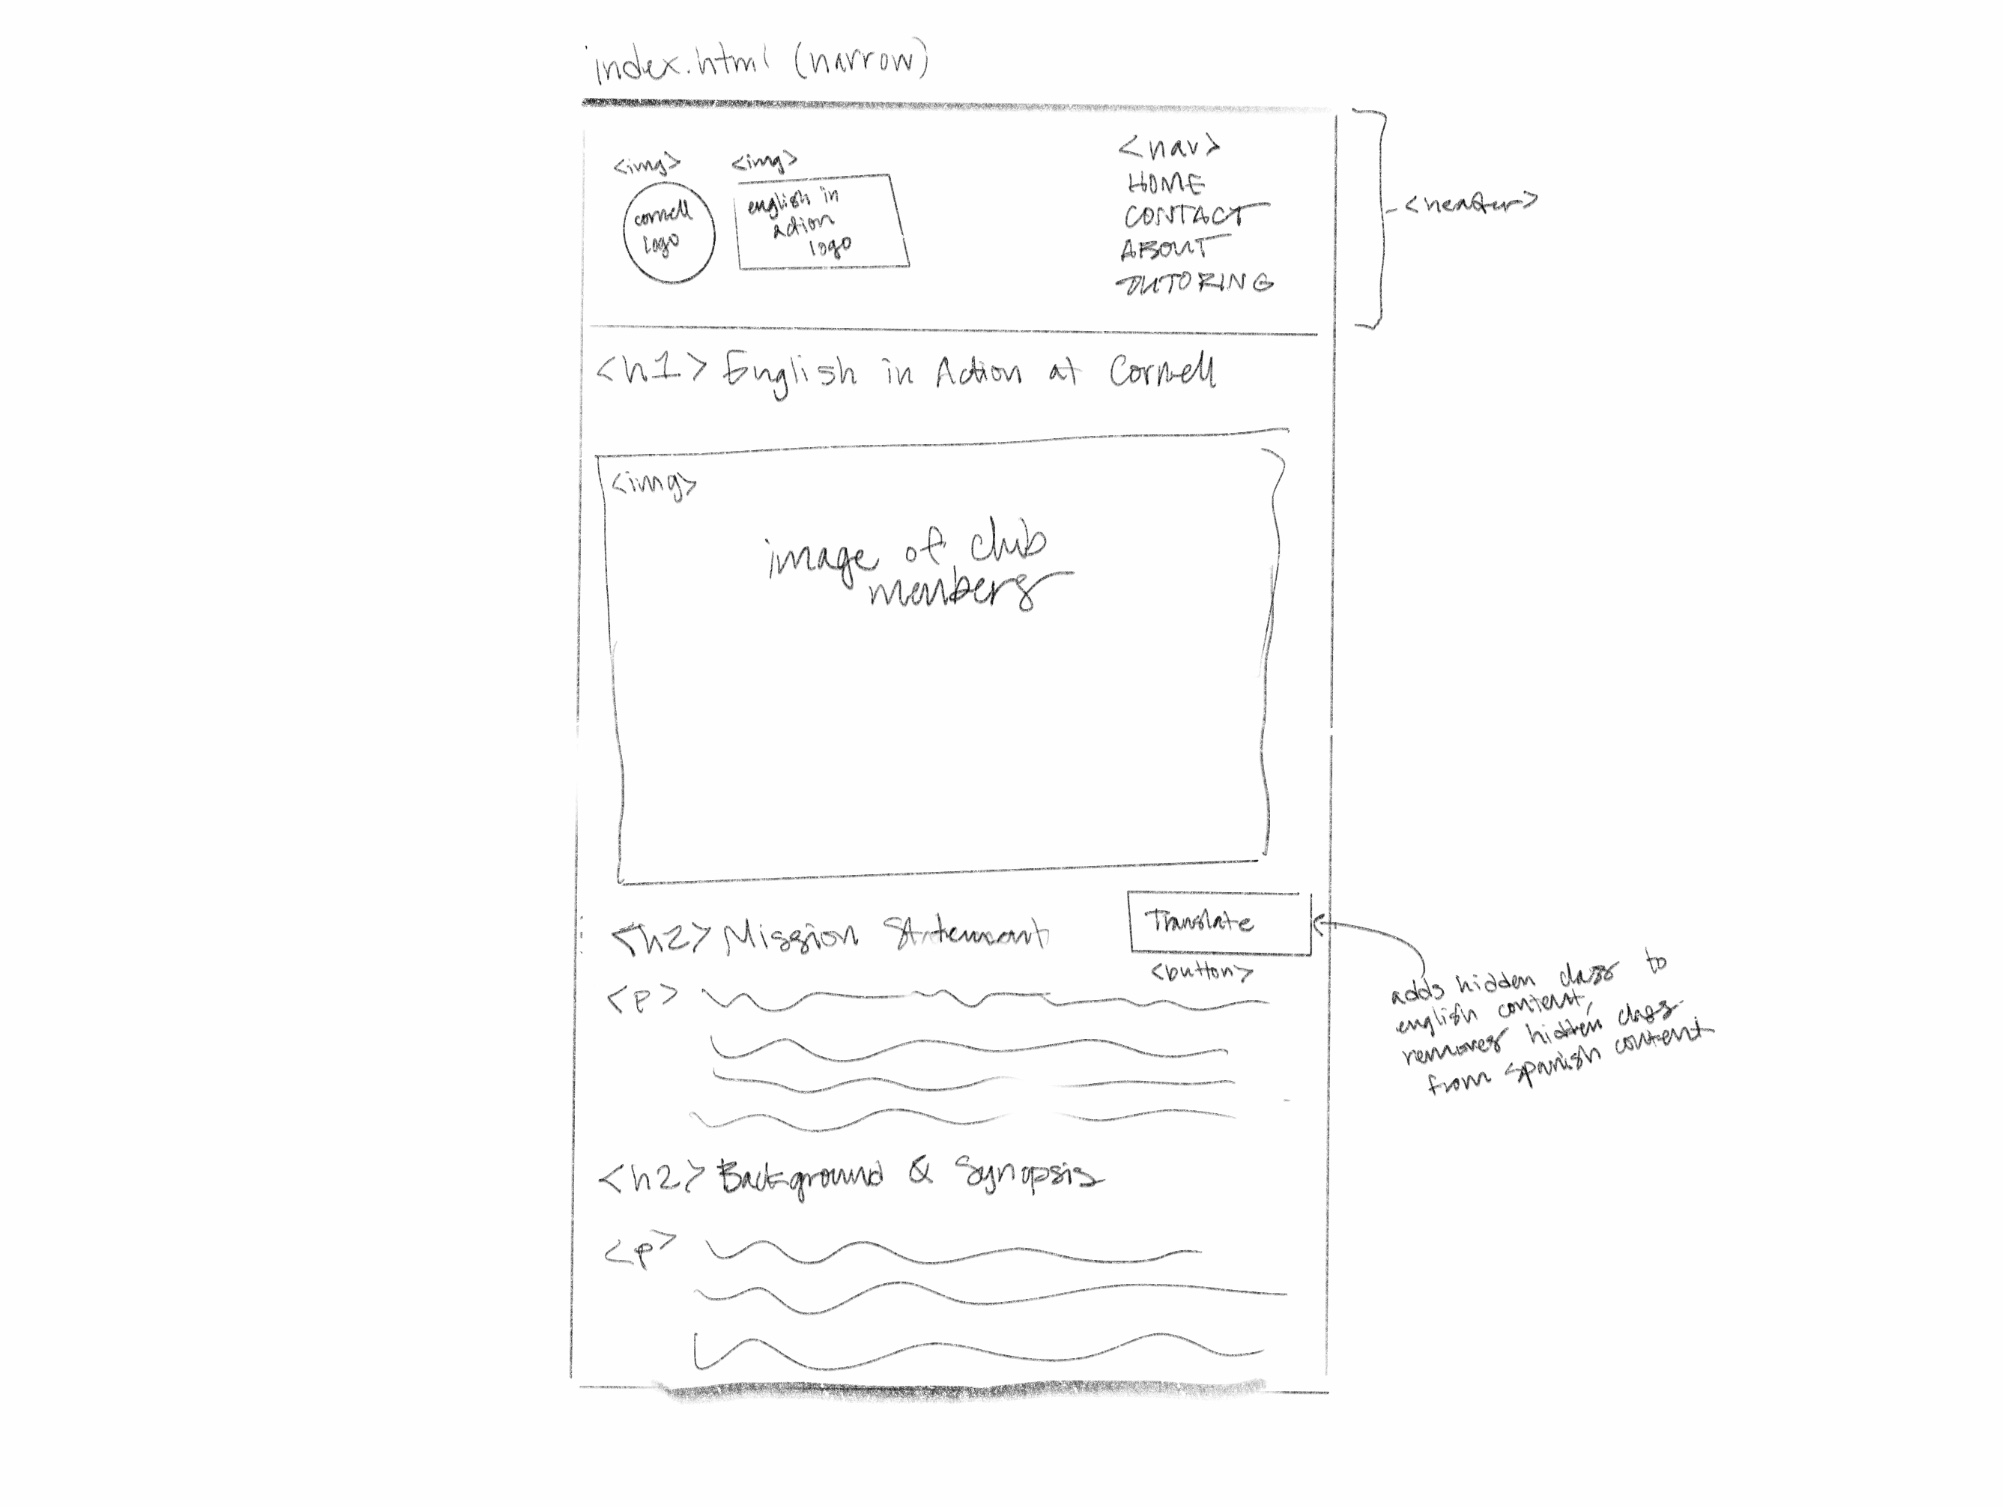 index.html (narrow)
<img>
<img>
cornell
logo
english in
action
logo
<nav>
HOME
CONTACT
ABOUT
TUTORING
<header>
<h1> English in Action at Cornell
<img>
image of club
members
<h2> Mission Statement
Translate
<button>
adds hidden class to
english content,
removes hidden class
from spanish content
<p>
<h2> Background & Synopsis
<p>